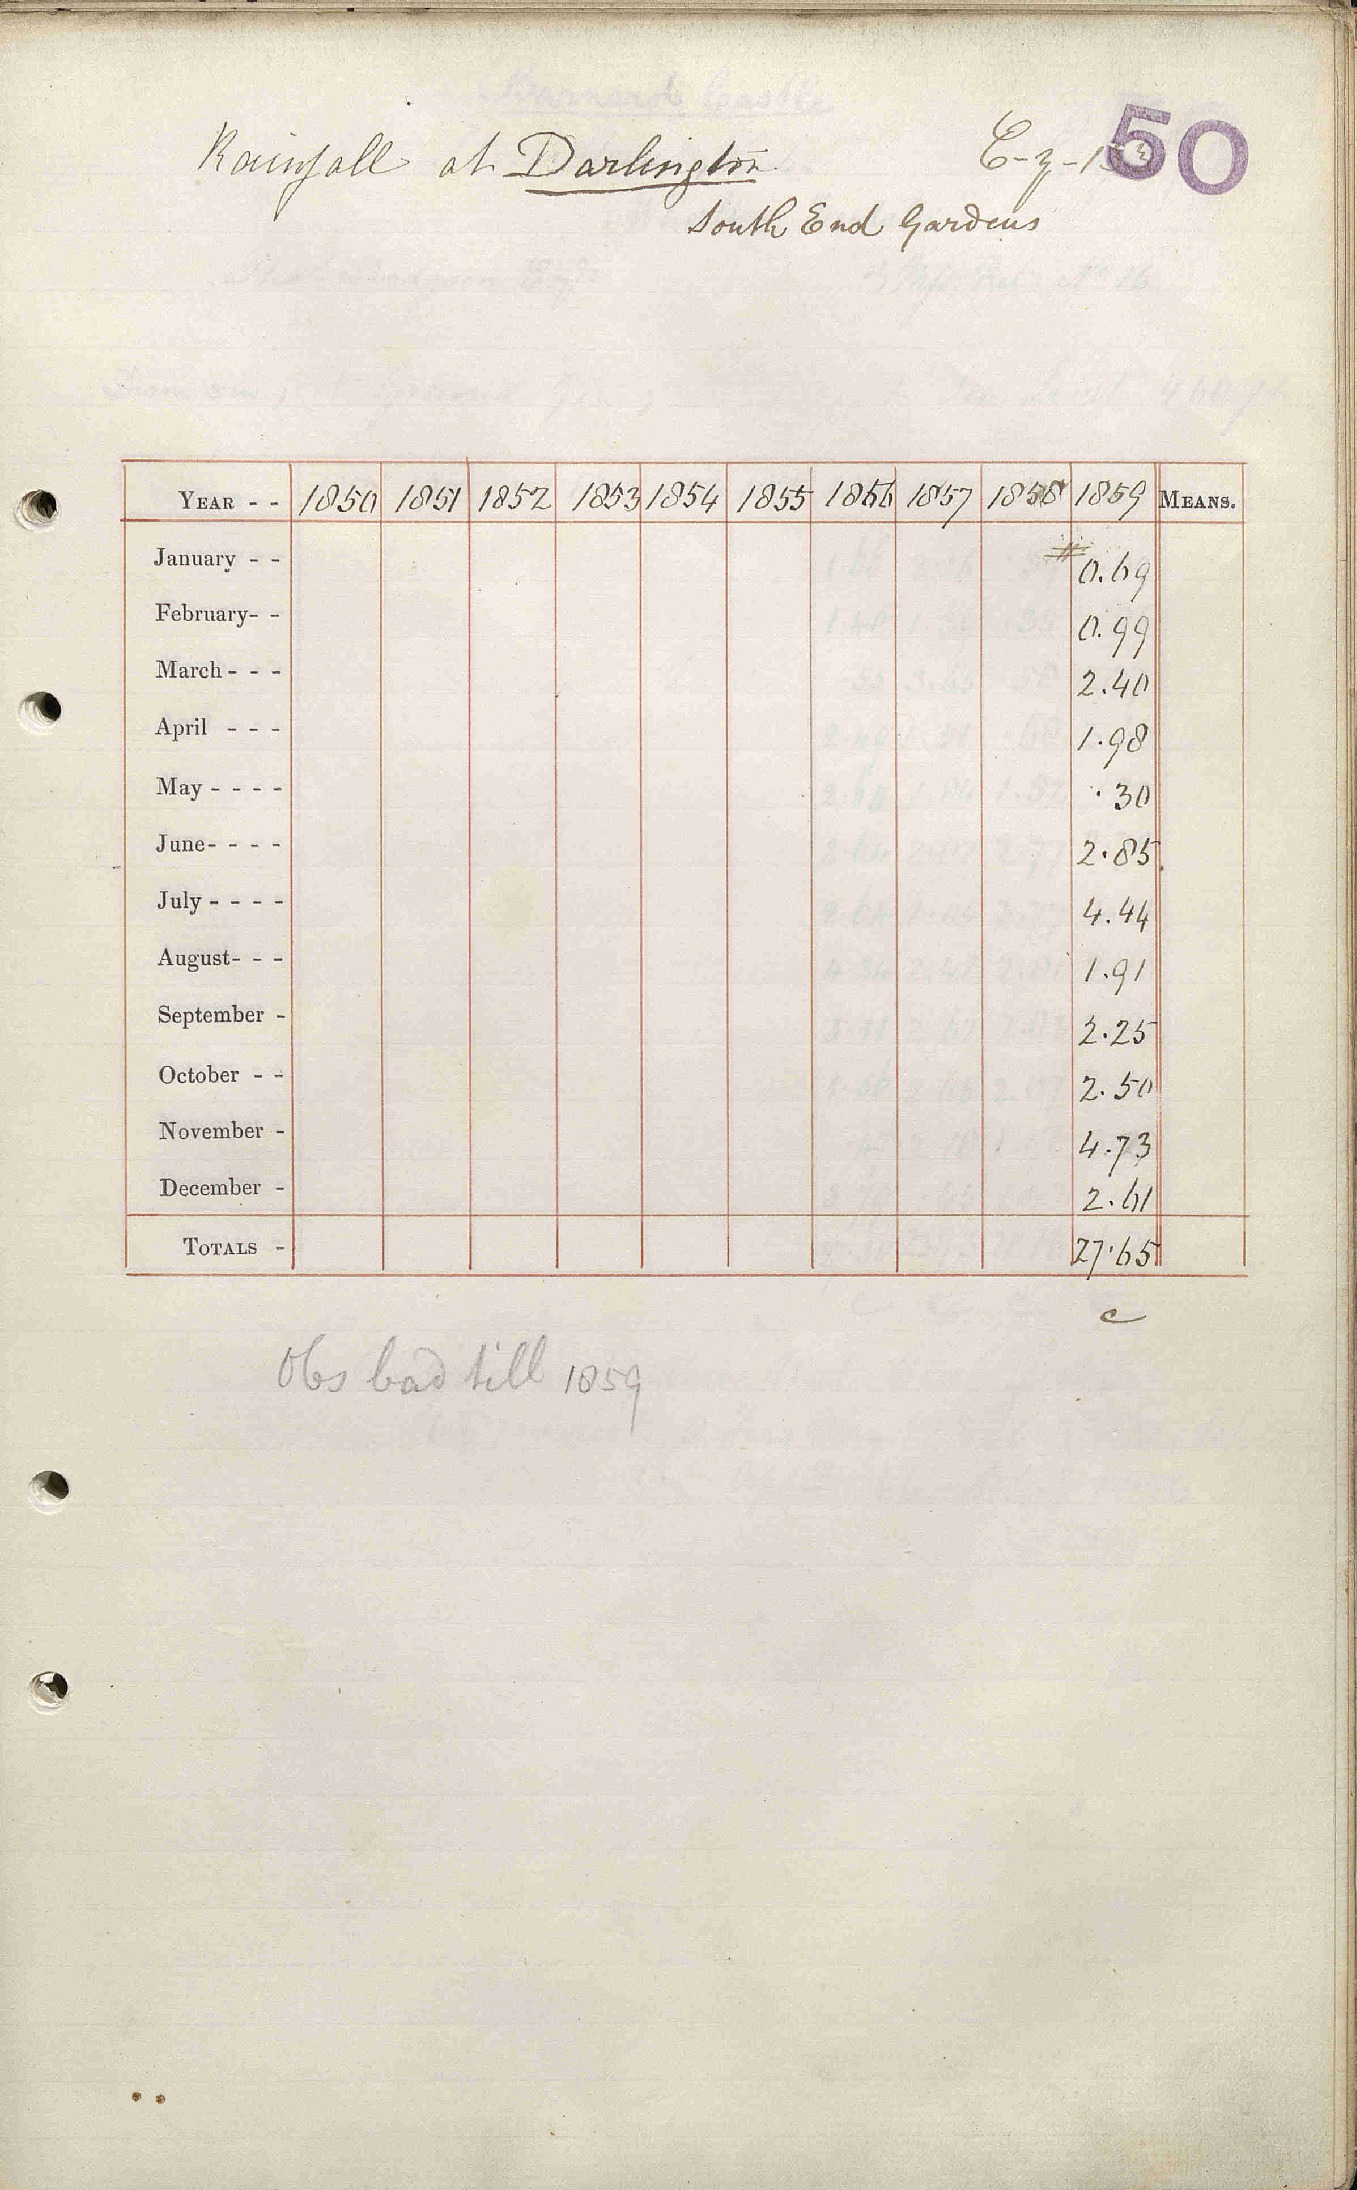 50
Rainfall at Darlington
South End Gardens
YEAR - - 1850 1851 1852 1853 1854 1855 1856 1857 1858 1859 MEANS.
January - - # 0.69
February- - 0.99
March- - - 2.40
April - - - 1.98
May - - - - .30
June- - - - 2.85
July - - - - 4.44
August- - - 1.91
September - 2.25
October - - 2.50
November - 4.73
December - 2.61
TOTALS - 27.65
c
Obs bad till 1859